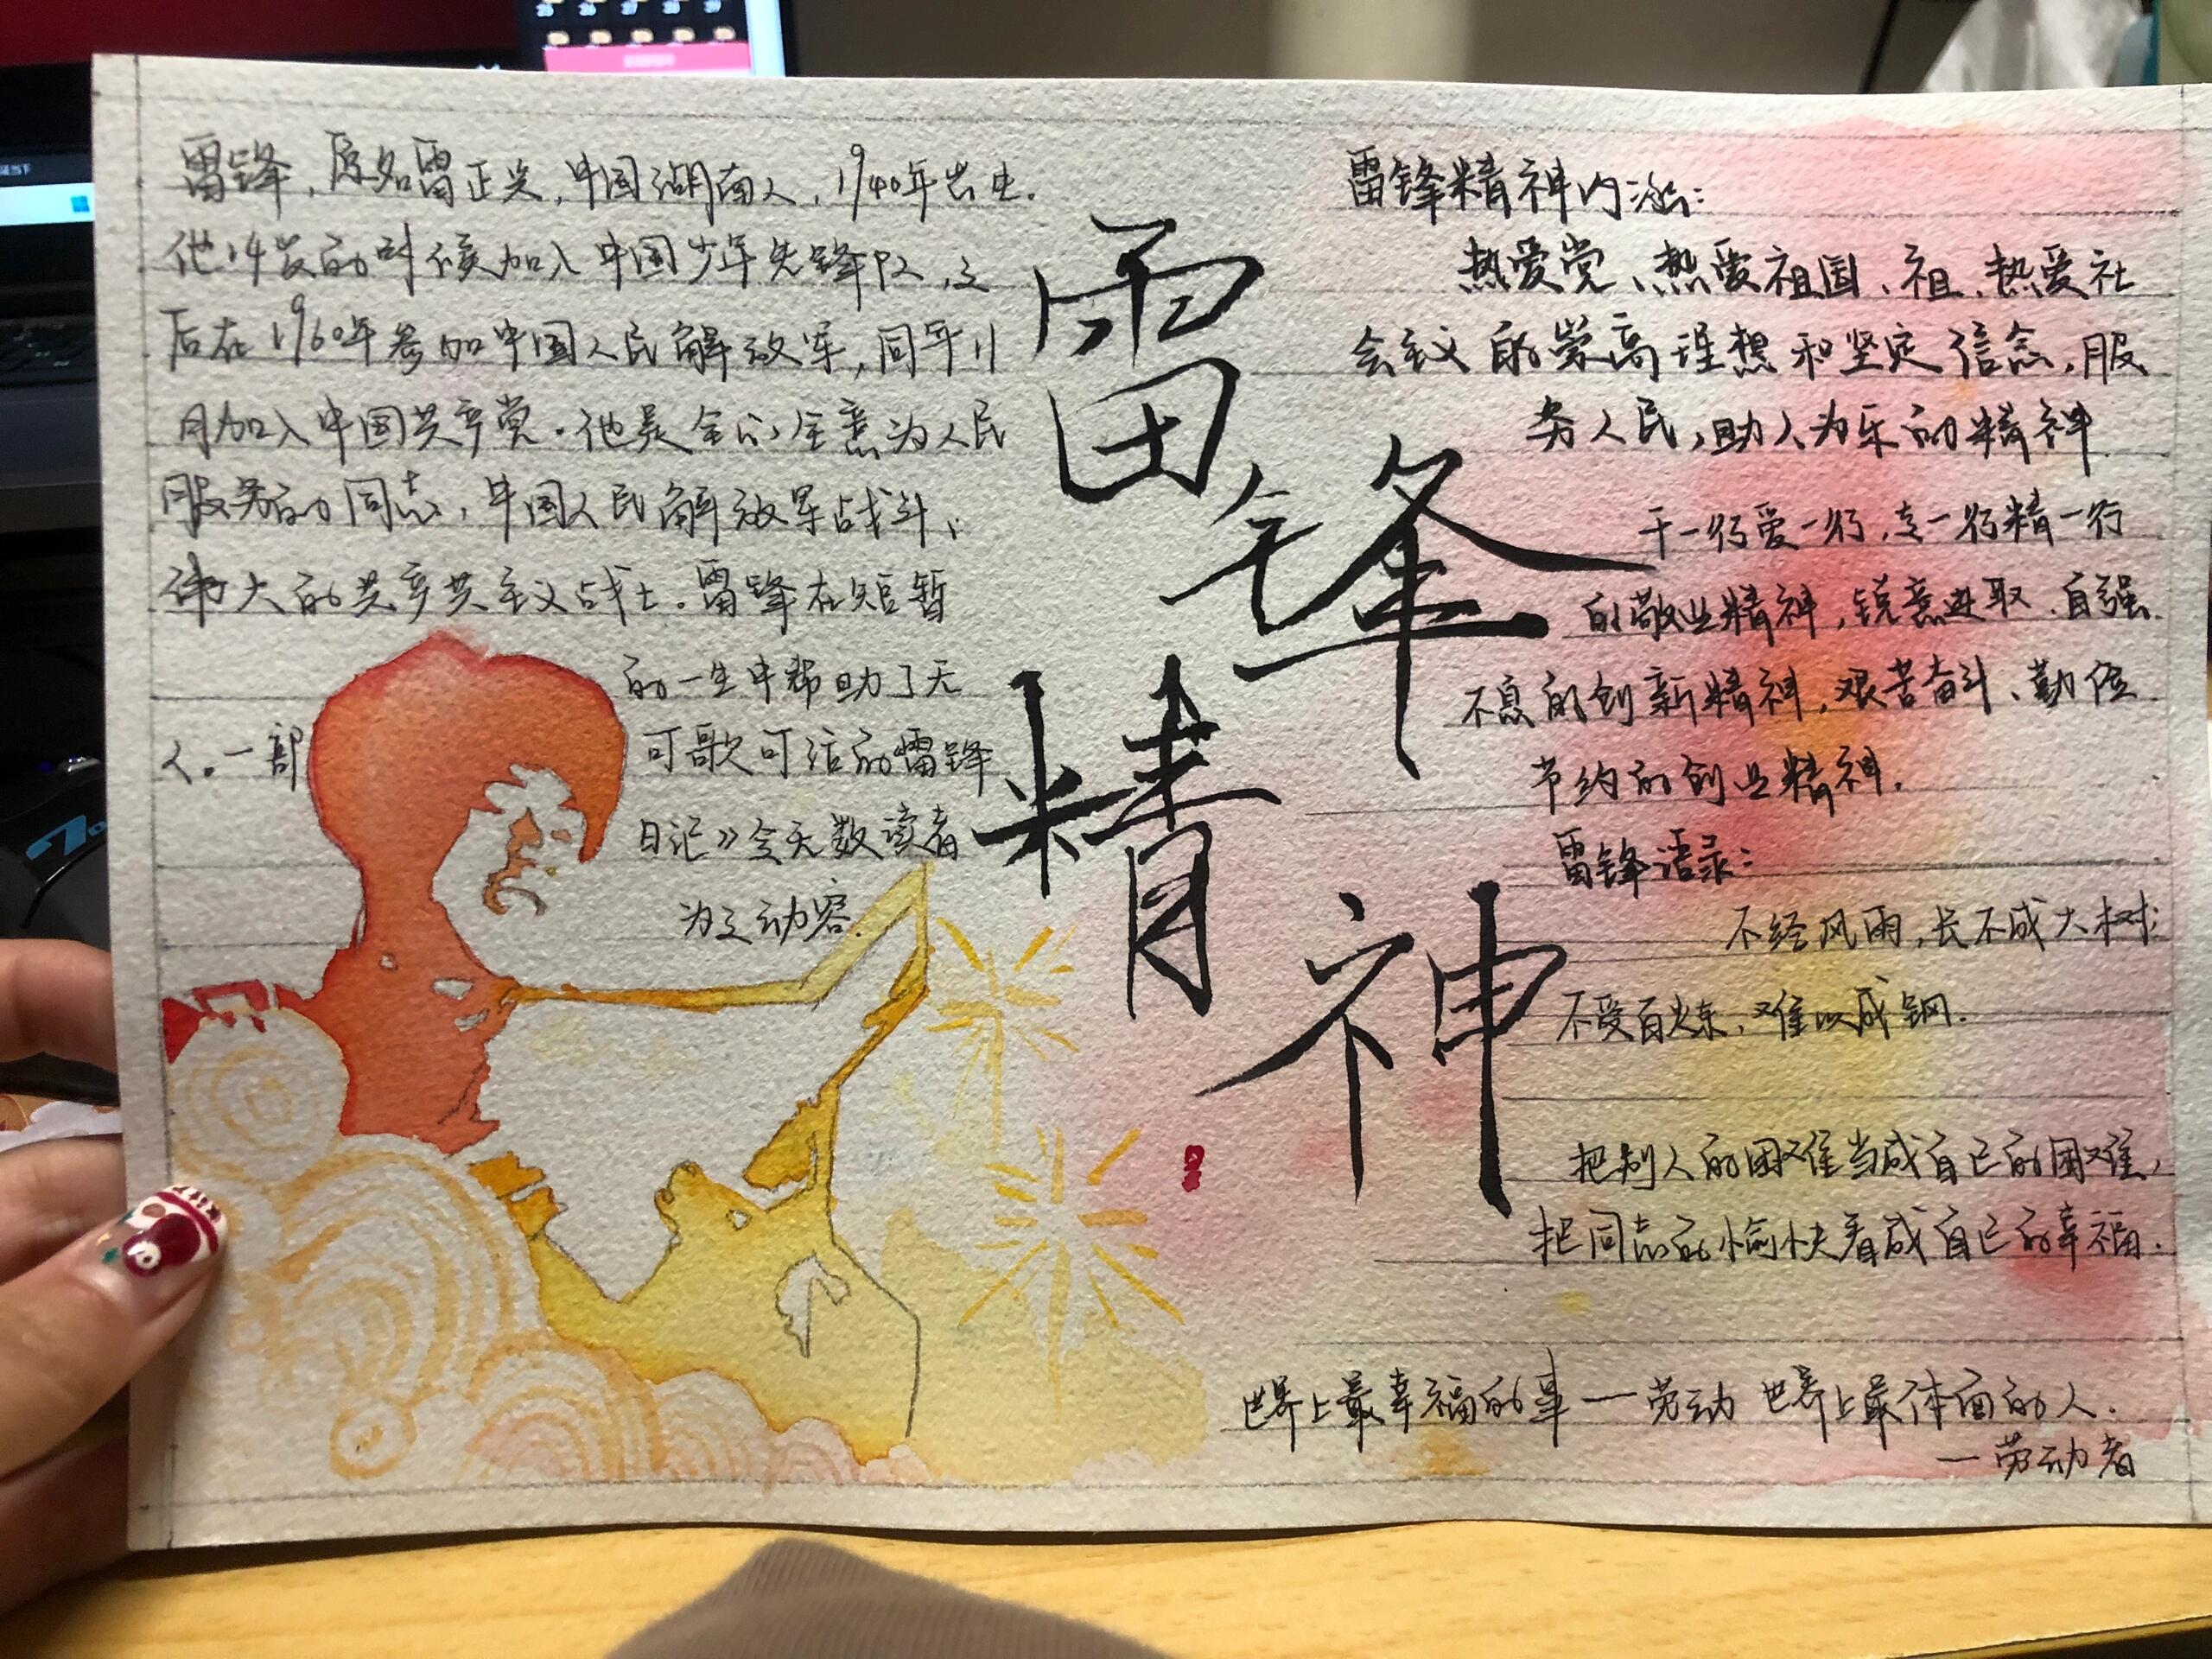 雷锋，原名雷正兴，中国湖南人，1940年出生.
他14岁的时候加入中国少年先锋队，之
后在1960年参加中国人民解放军，同年11
月加入中国共产党。他是全心全意为人民
服务的同志，中国人民解放军战斗，
伟大的共产共主义战士。雷锋在短暂
的一生中帮助了无
人。一部 可歌可泣的雷锋
日记》令无数读者
为之动容.
雷锋
精神
雷锋精神内涵：
热爱党、热爱祖国、祖、热爱社
会主义的崇高理想和坚定信念，服
务人民，助人为乐的精神
干一行爱一行，专一行精一行
的敬业精神，锐意进取、自强
不息的创新精神，艰苦奋斗、勤俭
节约的创业精神.
雷锋语录：
不经风雨，长不成大树；
不受百炼，难以成钢.
把别人的困难当成自己的困难，
把同志的愉快看成自己的幸福.
世界上最幸福的事一劳动 世界上最体面的人.
一劳动者
25 26 27 28 29